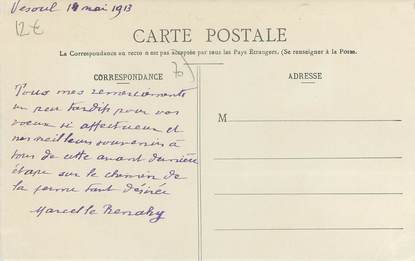 Vesoul 14 mai 1913
12€
CARTE POSTALE
La Correspondance au recto n'est pas acceptée par tous les Pays Étrangers. (Se renseigner à la Poste.
CORRESPONDANCE
70
ADRESSE
Tous mes remerciements
un peu tardifs pour vos
voeux si affectueux et
mes meilleurs souvenirs à
tous de cette avant dernière
étape sur le chemin de
la ferme tant désirée
Marcelle
M